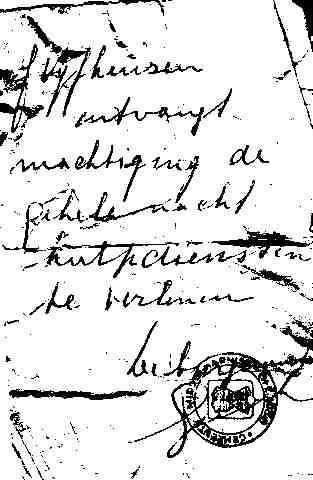 J Vijfhuizen
ontvangt
machtiging de
geheele nacht
hulpdiensten
te verleenen